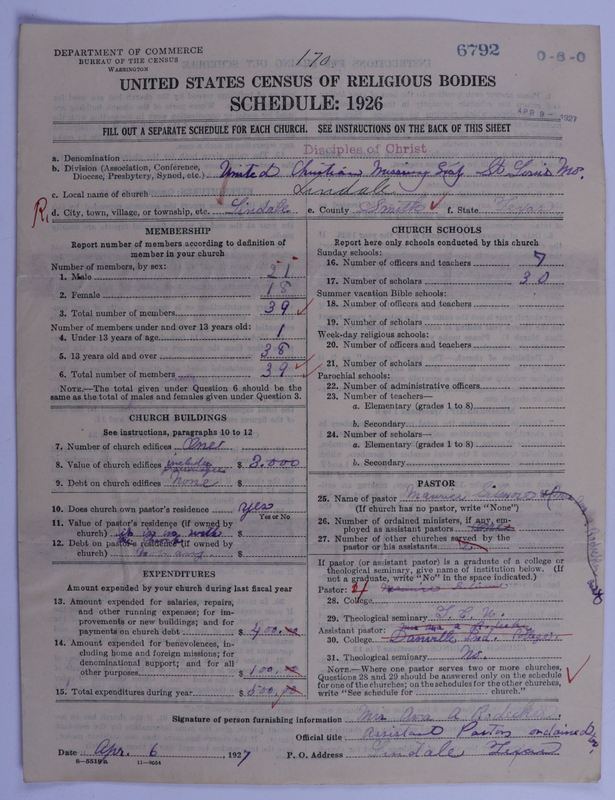 DEPARTMENT OF COMMERCE
BUREAU OF THE CENSUS
WASHINGTON
170
6792
0-6-0
UNITED STATES CENSUS OF RELIGIOUS BODIES
SCHEDULE: 1926
APR 9 - 1927
FILL OUT A SEPARATE SCHEDULE FOR EACH CHURCH. SEE INSTRUCTIONS ON THE BACK OF THIS SHEET
a. Denomination Disciples of Christ
b. Division (Association, Conference, Diocese, Presbytery, Synod, etc.) United Christian Missionary Soc St Louis Mo.
c. Local name of church Lindale
d. City, town, village, or township, etc. Lindale e. County Smith f. State Texas
MEMBERSHIP
Report number of members according to definition of member in your church
Number of members, by sex:
1. Male 21
2. Female 18
3. Total number of members 39
Number of members under and over 13 years old:
4. Under 13 years of age 1
5. 13 years old and over 38
6. Total number of members 39
NOTE.—The total given under Question 6 should be the same as the total of males and females given under Question 3.
CHURCH BUILDINGS
See instructions, paragraphs 10 to 12
7. Number of church edifices One
8. Value of church edifices $ 3.000
9. Debt on church edifices None $
10. Does church own pastor's residence yes
Yes or No
11. Value of pastor's residence (if owned by church) $
12. Debt on pastor's residence (if owned by church) $
EXPENDITURES
Amount expended by your church during last fiscal year
13. Amount expended for salaries, repairs, and other running expenses; for improvements or new buildings; and for payments on church debt $ 400.00
14. Amount expended for benevolences, including home and foreign missions; for denominational support; and for all other purposes $ 100.00
15. Total expenditures during year $ 500.00
CHURCH SCHOOLS
Report here only schools conducted by this church
Sunday schools:
16. Number of officers and teachers 7
17. Number of scholars 30
Summer vacation Bible schools:
18. Number of officers and teachers
19. Number of scholars
Week-day religious schools:
20. Number of officers and teachers
21. Number of scholars
Parochial schools:
22. Number of administrative officers
23. Number of teachers—
a. Elementary (grades 1 to 8)
b. Secondary
24. Number of scholars—
a. Elementary (grades 1 to 8)
b. Secondary
PASTOR
25. Name of pastor
(If church has no pastor, write "None")
26. Number of ordained ministers, if any, employed as assistant pastors
27. Number of other churches served by the pastor or his assistants
If pastor (or assistant pastor) is a graduate of a college or theological seminary, give name of institution below. (If not a graduate, write "No" in the space indicated.)
Pastor:
28. College
29. Theological seminary
Assistant pastor:
30. College
31. Theological seminary No
NOTE.—Where one pastor serves two or more churches, Questions 28 and 29 should be answered only on the schedule for one of the churches; on the schedules for the other churches, write "See schedule for church."
Signature of person furnishing information Mrs Ava A
Official title Assistant Pastor ordained
Date Apr. 6, 1927 P. O. Address Lindale Texas
8-5519a 11-9054